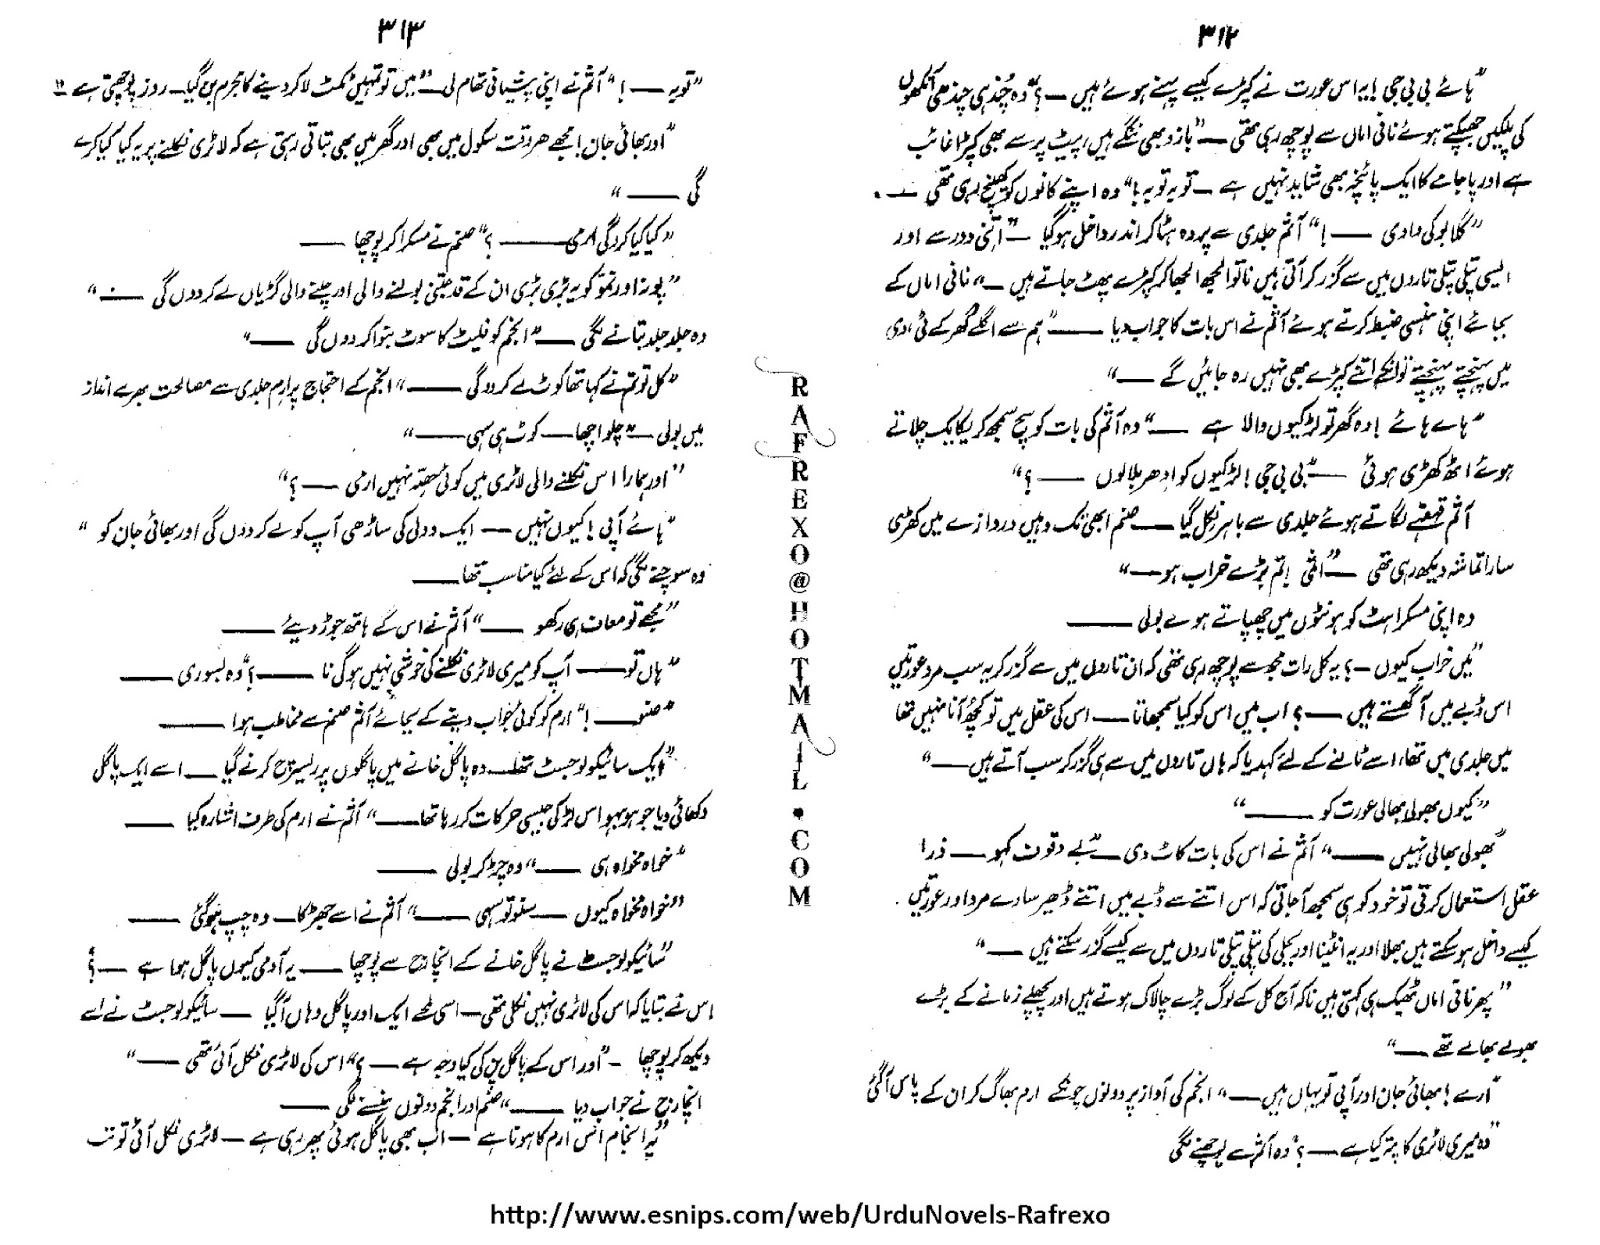 ۳۱۲
"ہائے بی بی جی! یہ اس عورت نے کپڑے کیسے پہنے ہوئے ہیں —؟" وہ چُندی چندھی آنکھوں
کی پلکیں جھپکتے ہوئے نانی اماں سے پوچھ رہی تھی — "بازو بھی ننگے ہیں، پیٹ پر سے بھی کپڑا غائب
ہے اور پاجامے کا ایک پائنچہ بھی شاید نہیں ہے — توبہ توبہ!" وہ اپنے کانوں کو کھینچ رہی تھی —
"گلابو کی دادی —!" آثم جلدی سے پردہ ہٹا کر اندر داخل ہو گیا — "اتنی دور سے اور
ایسی پتلی پتلی تاروں میں سے گزر کر آتی ہیں نا تو الجھ الجھا کر کپڑے پھٹ جاتے ہیں —" نانی اماں کے
بجائے اپنی ہنسی ضبط کرتے ہوئے آثم نے اس بات کا جواب دیا — "ہم سے اگلے گھر کے ٹی وی
میں پہنچتے پہنچتے تو انکے اتنے کپڑے بھی نہیں رہ جائیں گے —"
"ہائے ہائے! وہ گھر تو لڑکیوں والا ہے —" وہ آثم کی بات کو سچ سمجھ کر یکایک چلاتے
ہوئے اٹھ کھڑی ہوئی — "بی بی جی! لڑکیوں کو ادھر بلا لوں —؟"
آثم قہقہے لگاتے ہوئے جلدی سے باہر نکل گیا — صنم ابھی تک وہیں دروازے میں کھڑی
سارا تماشہ دیکھ رہی تھی — "اثمی! تم بڑے خراب ہو —"
وہ اپنی مسکراہٹ کو ہونٹوں میں چھپاتے ہوئے بولی —
"میں خراب کیوں —؟ یہ کل رات مجھ سے پوچھ رہی تھی کہ ان تاروں میں سے گزر کر یہ سب مرد عورتیں
اس ڈبے میں آ گھستے ہیں —؟ اب میں اس کو کیا سمجھاتا — اس کی عقل میں تو کچھ آنا نہیں تھا
میں جلدی میں تھا، اسے ٹالنے کے لئے کہہ دیا کہ ہاں تاروں میں سے ہی گزر کر سب آتے ہیں —"
"کیوں بھولی بھالی عورت کو —"
"بھولی بھالی نہیں —" آثم نے اس کی بات کاٹ دی — "بے وقوف کہو — ذرا
عقل استعمال کرتی تو خود کو ہی سمجھ آ جاتی کہ اس اتنے سے ڈبے میں اتنے ڈھیر سارے مرد اور عورتیں
کیسے داخل ہو سکتے ہیں بھلا اور یہ انٹینا اور بجلی کی پتلی پتلی تاروں میں سے کیسے گزر سکتے ہیں —"
"پھر نانی اماں ٹھیک ہی کہتی ہیں نا کہ آج کل کے لوگ بڑے چالاک ہوتے ہیں اور پچھلے زمانے کے بڑے
بھولے بھالے تھے —"
"ارے! بھائی جان اور آپی تو یہاں ہیں —" انجم کی آواز پر دونوں چونکے ارم بھاگ کر ان کے پاس آ گئی
"وہ میری لاٹری کا پتہ کیا ہے —؟" وہ آثم سے پوچھنے لگی
۳۱۳
"توبہ —!" آثم نے اپنی پیشانی تھام لی — "میں تو تمہیں ٹکٹ لا کر دینے کا مجرم بن گیا — روز پوچھتی ہے"
"اور بھائی جان! مجھے ہر وقت سکول میں بھی اور گھر میں بھی بتاتی رہتی ہے کہ لاٹری نکلنے پر یہ کیا کیا کرے
گی —"
"کیا کیا کرو گی ارمی —؟" صنم نے مسکرا کر پوچھا —
"پونہ اور نمو کو یہ بڑی بڑی ان کے قد جتنی بولنے والی اور چلنے والی گڑیاں لے کر دوں گی —"
وہ جلد جلد بتانے لگی — "انجم کو فلیٹ کا سوٹ بنوا کر دوں گی —"
"کل تو تم نے کہا تھا کوٹ لے کر دو گی —" انجم کے احتجاج پر ارم جلدی سے مصالحت بھرے انداز
میں بولی — "چلو اچھا — کوٹ ہی سہی —"
"اور ہمارا اس نکلنے والی لاٹری میں کوئی حصّہ نہیں ارمی —؟"
"ہائے آپی! کیوں نہیں — ایک وولی کی ساڑھی آپ کو لے کر دوں گی اور بھائی جان کو"
وہ سوچنے لگی کہ اس کے لئے کیا مناسب تھا —
"مجھے تو معاف ہی رکھو —" آثم نے اس کے ہاتھ جوڑ دیئے —
"ہاں تو — آپ کو میری لاٹری نکلنے کی خوشی نہیں ہو گی نا —؟" وہ بسوری —
"صنو —!" ارم کو کوئی جواب دینے کے بجائے آثم صنم سے مخاطب ہوا —
"ایک سائیکولوجسٹ تھا — وہ پاگل خانے میں پاگلوں پر ریسرچ کرنے گیا — اسے ایک پاگل
دکھائی دیا جو ہو بہو اس لڑکی جیسی حرکات کر رہا تھا —" آثم نے ارم کی طرف اشارہ کیا —
"خواہ مخواہ ہی —" وہ چڑ کر بولی —
"خواہ مخواہ کیوں — سنو تو سہی —" آثم نے اسے جھڑکا — وہ چپ ہو گئی —
"سائیکولوجسٹ نے پاگل خانے کے انچارج سے پوچھا — یہ آدمی کیوں پاگل ہوا ہے —؟
اس نے بتایا کہ اس کی لاٹری نہیں نکلی تھی — اسی لمحے ایک اور پاگل وہاں آ گیا — سائیکولوجسٹ نے اسے
دیکھ کر پوچھا — "اور اس کے پاگل پن کی کیا وجہ ہے —؟" اس کی لاٹری نکل آئی تھی —"
انچارج نے جواب دیا —" صنم اور انجم دونوں ہنسنے لگی —
"یہی انجام اس ارم کا ہونا ہے — اب بھی پاگل ہوئی پھر رہی ہے — لاٹری نکل آئی تو تب
RAFREXO@HOTMAIL.COM
http://www.esnips.com/web/UrduNovels-Rafrexo